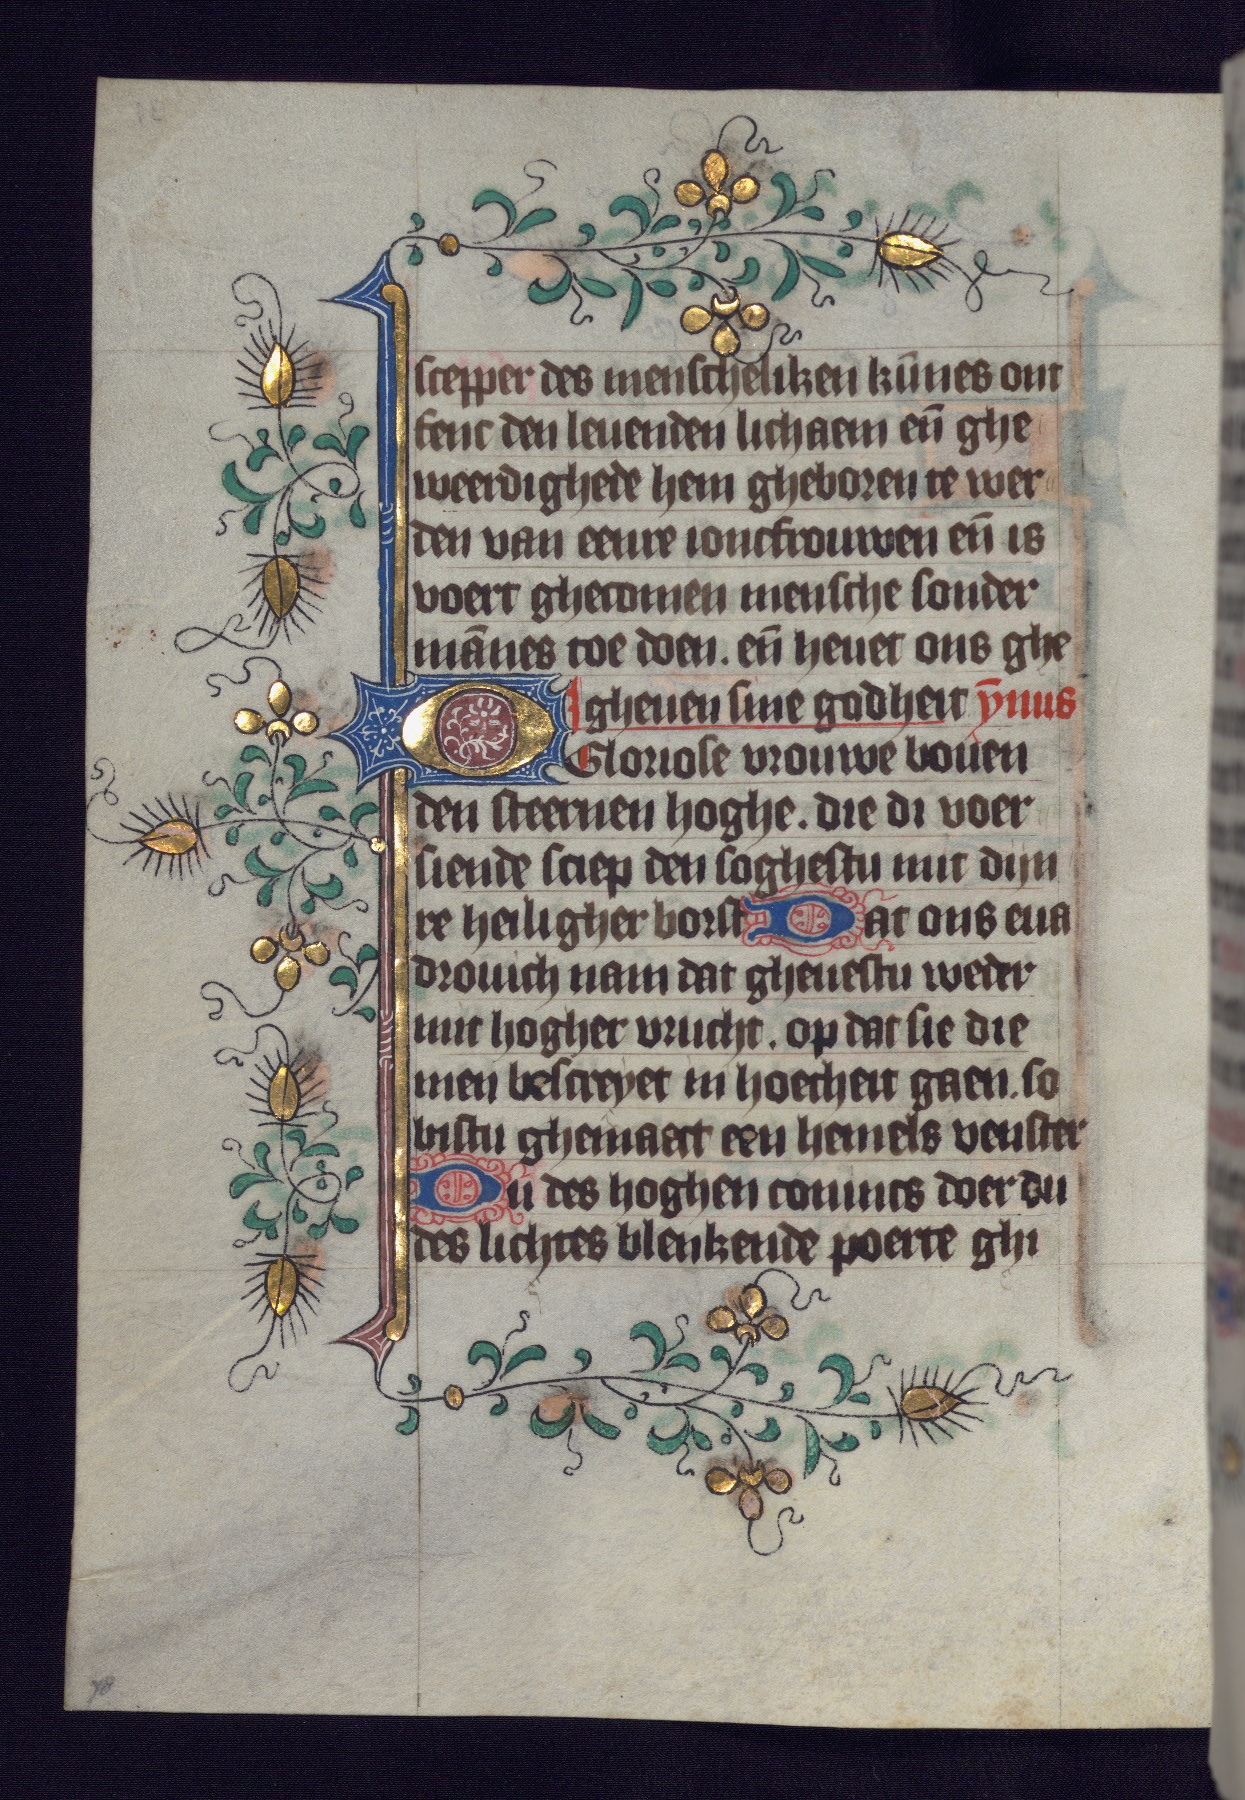 scepper des menscheliken kūnes ont
fenc den leuenden lichaem en̄ ghe
weerdighede hem gheboren te wer
den van eenre ioncfrouwen en̄ is
voert ghecomen mensche sonder
mānes toe doen. en̄ heuet ons ghe
gheuen sine godheit ȳnus
O Gloriose vrouwe bouen
den steernen hoghe. die di voer
siende sciep den soghestu mit dijn
re heiligher borst Dat ons eua
drouich nam dat gheuestu weder
mit hogher vrucht. op dat sie die
men bescreyet in hoecheit gaen. so
bistu ghemaect een hemels venster
Du des hoghen conincs doer du
des lichtes blenkende poerte ghi